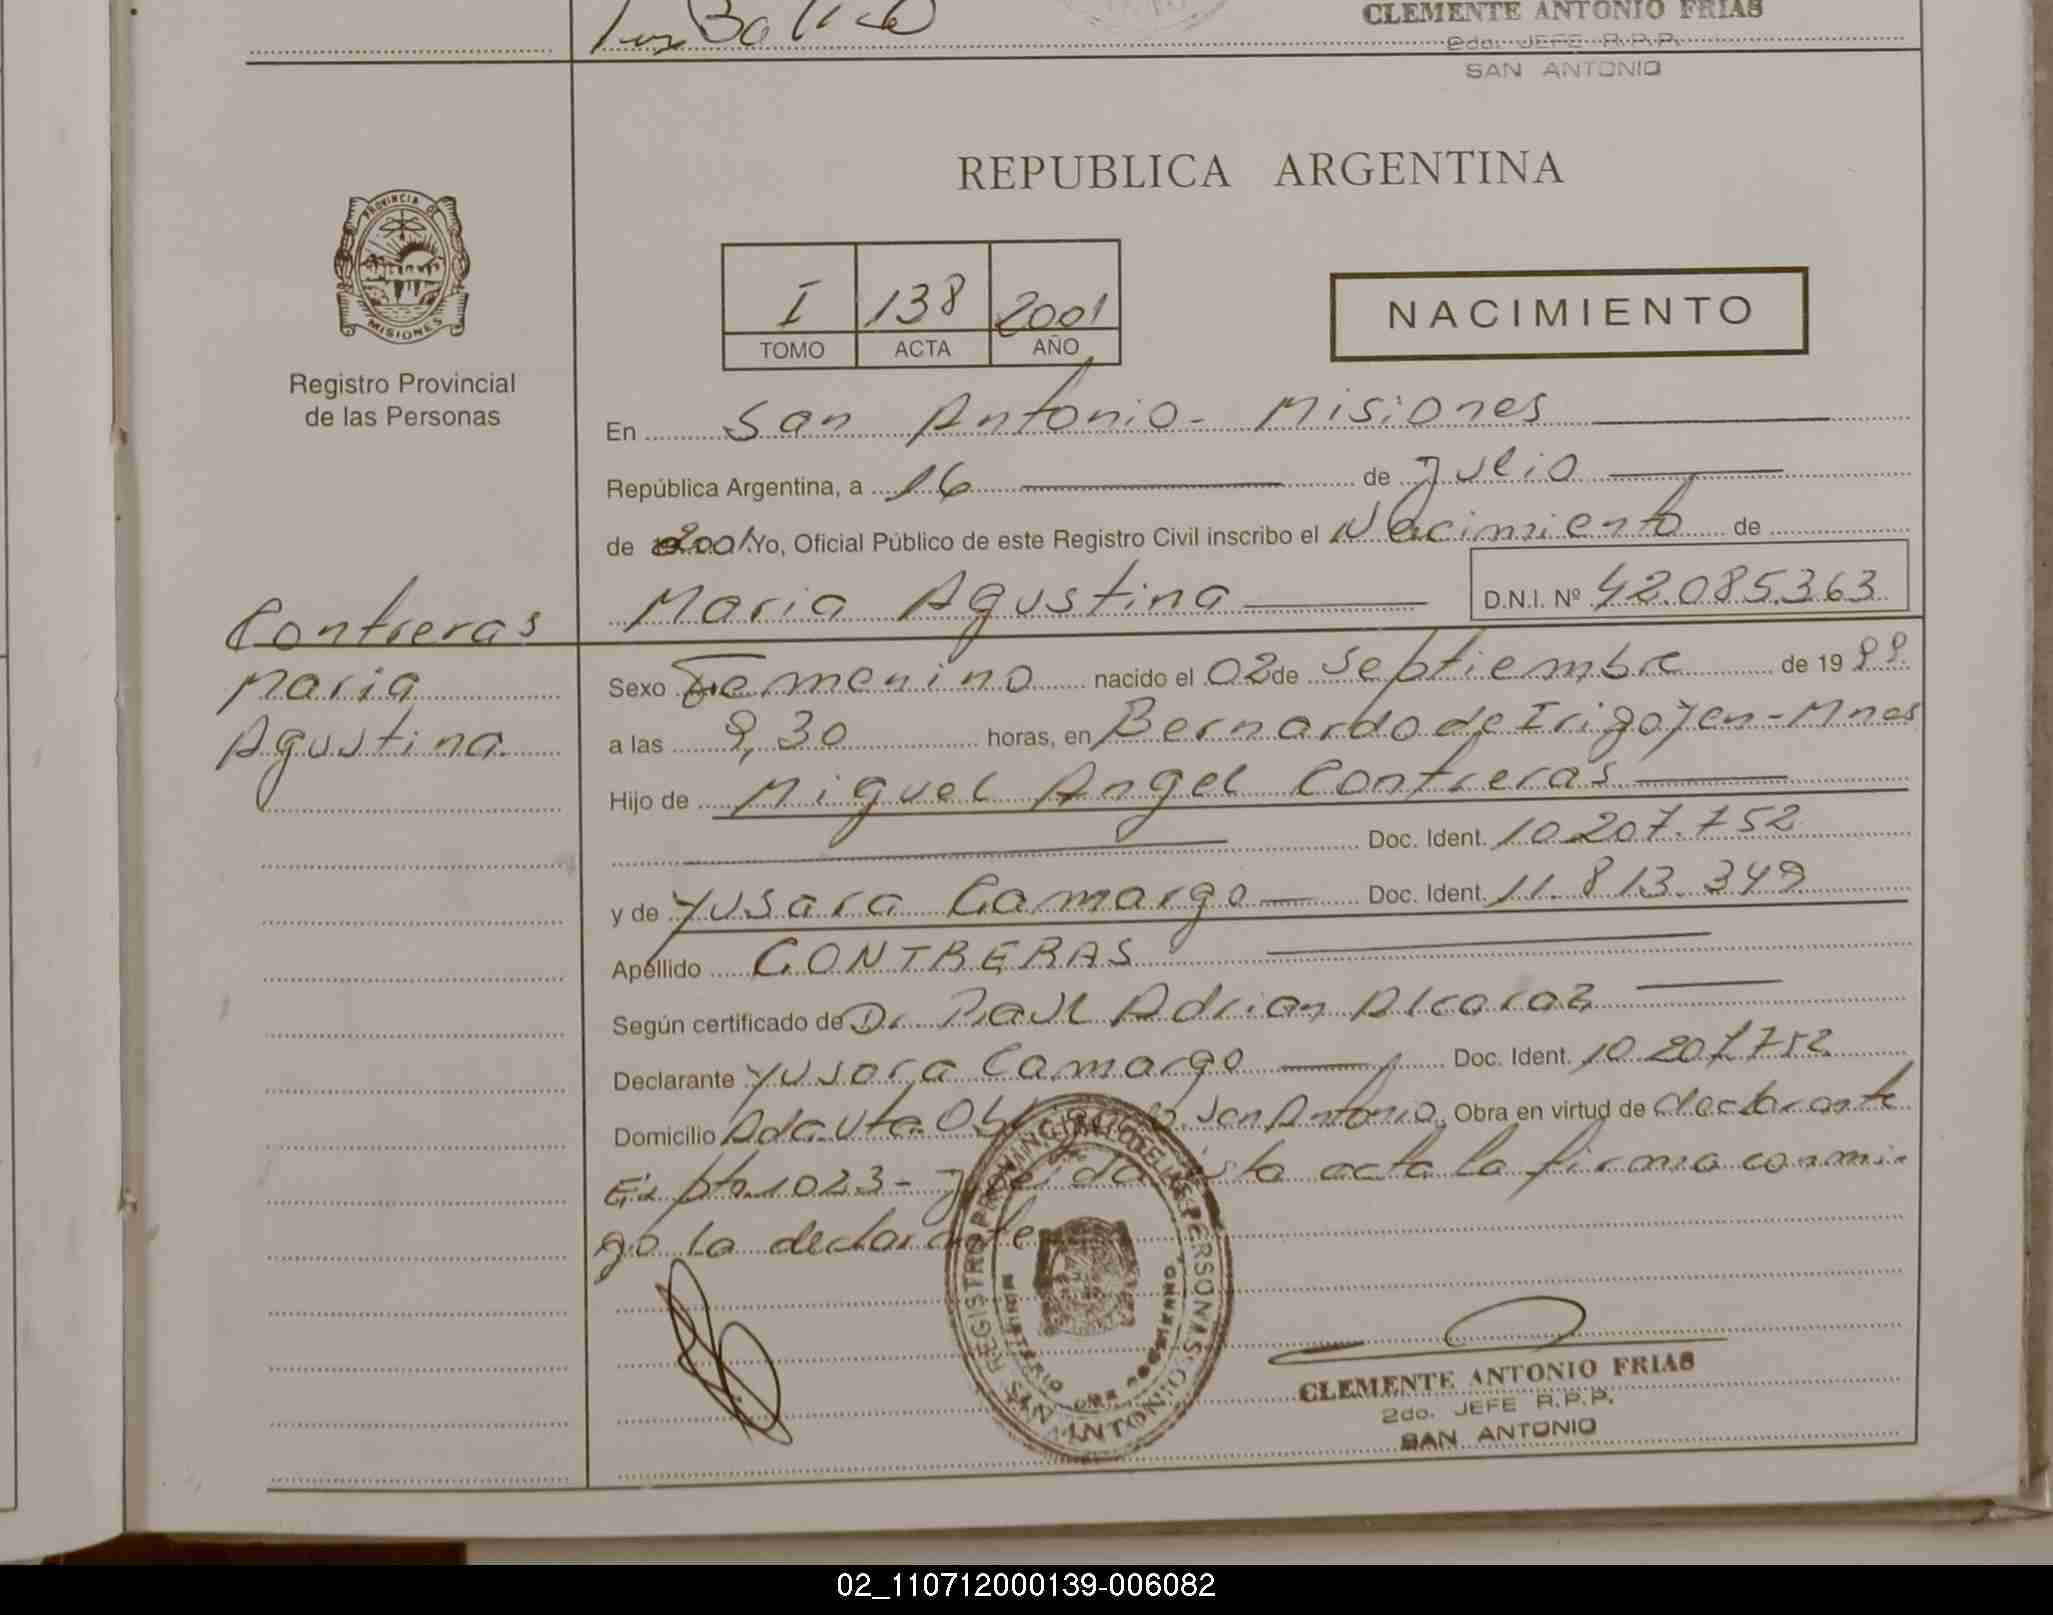 CLEMENTE ANTONIO FRIAS
2do. JEFE R.P.P.
SAN ANTONIO
REPUBLICA ARGENTINA
PROVINCIA DE MISIONES
I 138 2001
TOMO ACTA AÑO
NACIMIENTO
Registro Provincial
de las Personas
En San Antonio - Misiones
República Argentina, a 16 de Julio
de 2001 Yo, Oficial Público de este Registro Civil inscribo el Nacimiento de
Maria Agustina D.N.I. Nº 42.085.363
Contreras
Maria
Agustina
Sexo Femenino nacido el 02 de Septiembre de 1999
a las 9,30 horas, en Bernardo de Irigoyen - Mnes
Hijo de Miguel Angel Contreras
Doc. Ident. 10.207.752
y de Yusara Camargo Doc. Ident. 11.813.349
Apellido CONTRERAS
Según certificado de Dr. Raul Adrian Alcaraz
Declarante Yusara Camargo Doc. Ident. 10.207.752
Domicilio San Antonio. Obra en virtud de declarante
1023 - acta la firma conmi-
go la declarante
REGISTRO PROVINCIAL DE LAS PERSONAS
MINISTERIO DE GOBIERNO
SAN ANTONIO
CLEMENTE ANTONIO FRIAS
2do. JEFE R.P.P.
SAN ANTONIO
02_110712000139-006082